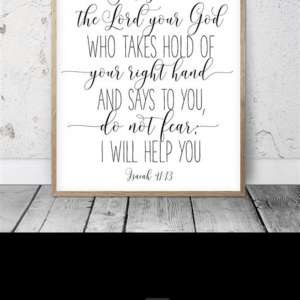 the Lord your God
WHO TAKES HOLD OF
your right hand
AND SAYS TO YOU,
do not fear;
I WILL HELP YOU
Isaiah 41:13